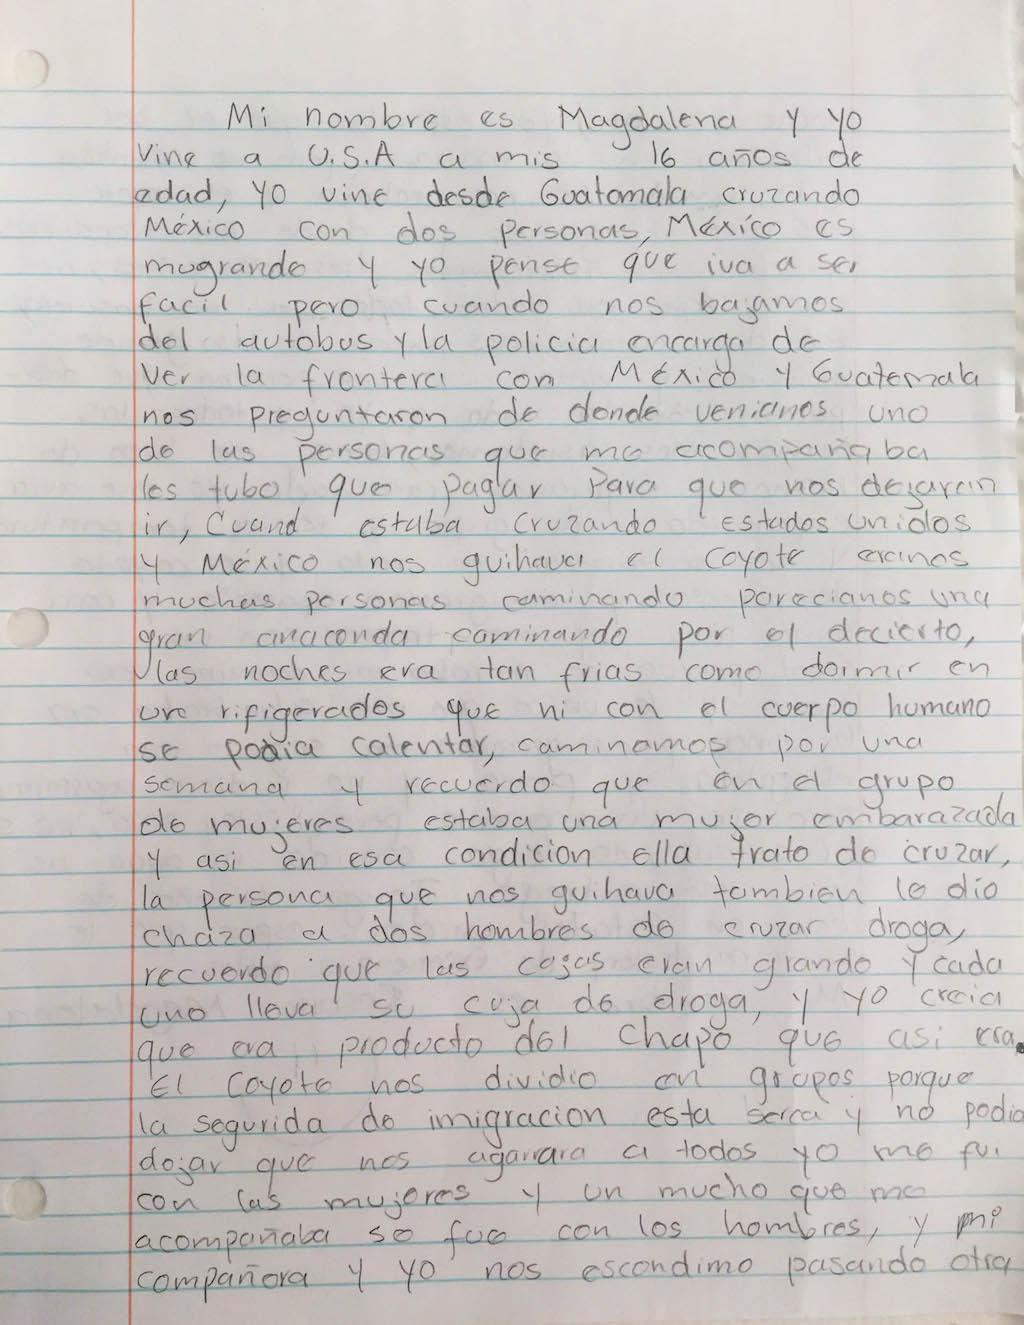 Mi nombre es Magdalena y yo
vine a U.S.A a mis 16 años de
edad, yo vine desde Guatomala cruzando
México con dos personas, México es
mugrande y yo pense que iva a ser
facil pero cuando nos bajamos
del autobus y la policia encarga de
ver la frontera con México y Guatemala
nos preguntaron de donde venianos uno
de las personas que me acompañaba
les tubo que pagar para que nos dejaran
ir, Cuand estaba cruzando estados unidos
y México nos guihava el coyote eranos
muchas personas caminando parecianos una
gran anaconda caminando por el decierto,
las noches era tan frias como dormir en
un rifigerados que ni con el cuerpo humano
se podia calentar, caminamos por una
semana y recuerdo que en el grupo
de mujeres estaba una mujer embarazada
y asi en esa condicion ella trato de cruzar,
la persona que nos guihava tambien le dio
chaza a dos hombres de cruzar droga,
recuerdo que las cajas eran grande y cada
uno lleva su caja de droga, y yo creia
que era producto del chapo que asi era.
El coyote nos dividio en grupos porque
la segurida de imigracion esta serca y no podia
dejar que nos agarrara a todos yo me fui
con las mujeres y un mucho que me
acompañaba se fue con los hombres, y mi
compañera y yo nos escondimo pasando otra